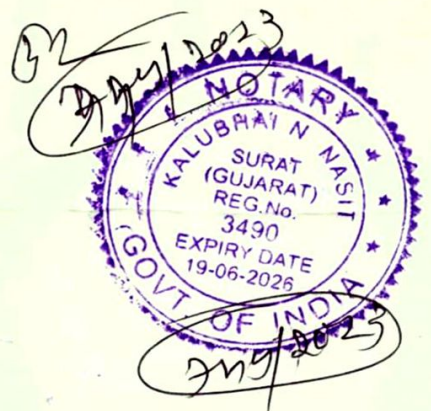 NOTARY
KALUBHAI N NASIT
SURAT
(GUJARAT)
REG.No.
3490
EXPIRY DATE
19-06-2026
GOVT OF INDIA